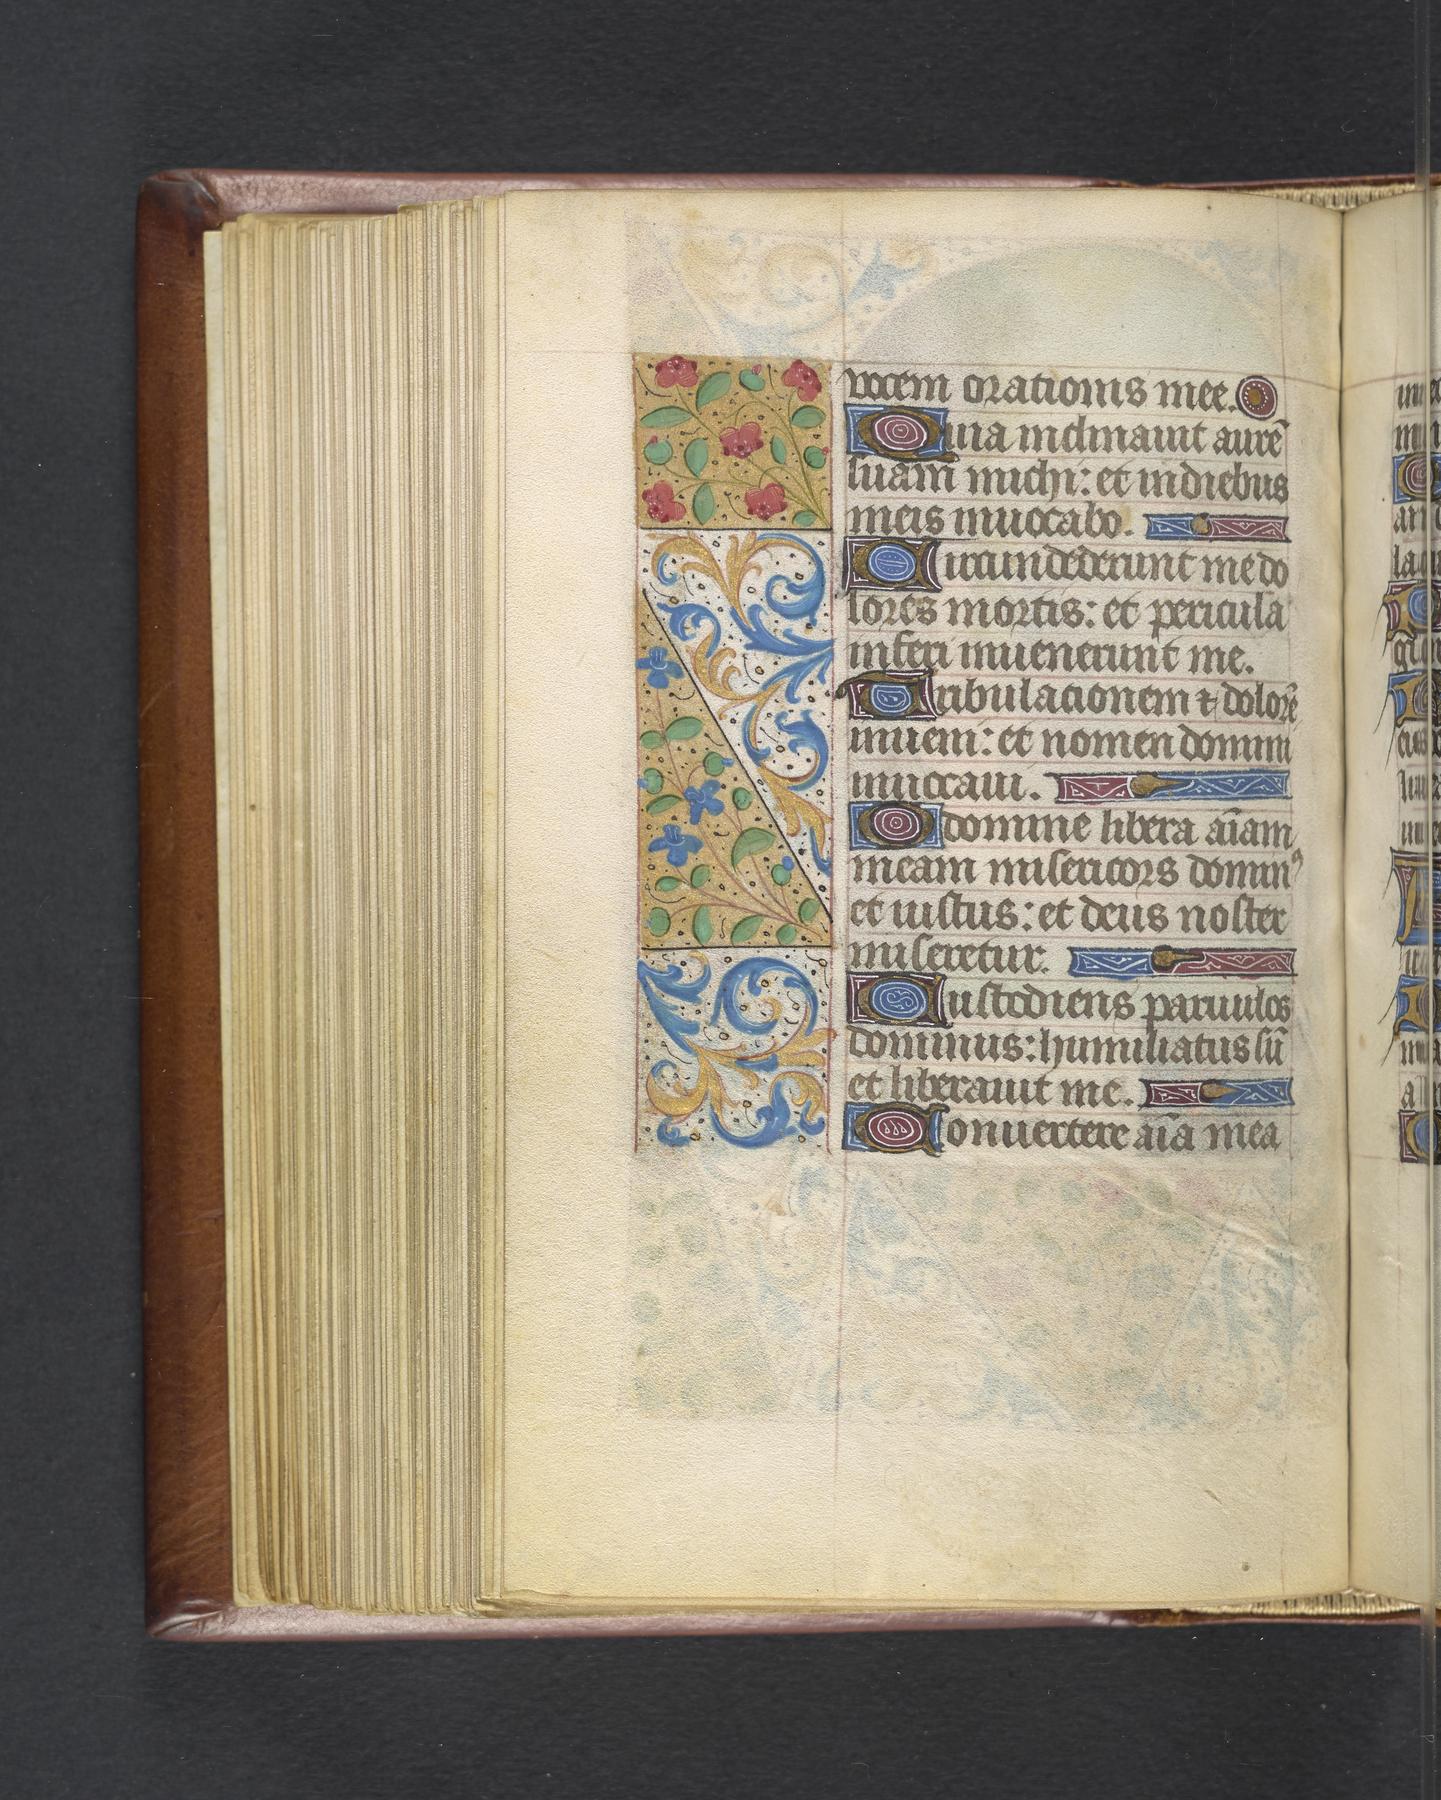 vocem orationis mee.
Quia inclinauit aurē
suam michi: et in diebus
meis inuocabo.
Circundederunt me do
lores mortis: et pericula
inferi inuenerunt me.
Tribulacionem ⁊ dolorē
inueni: et nomen domini
inuocaui.
O domine libera aīam
meam misericors dominꝰ
et iustus: et deus noster
miseretur.
Custodiens paruulos
dominus: humiliatus sū
et liberauit me.
Conuertere aīa mea